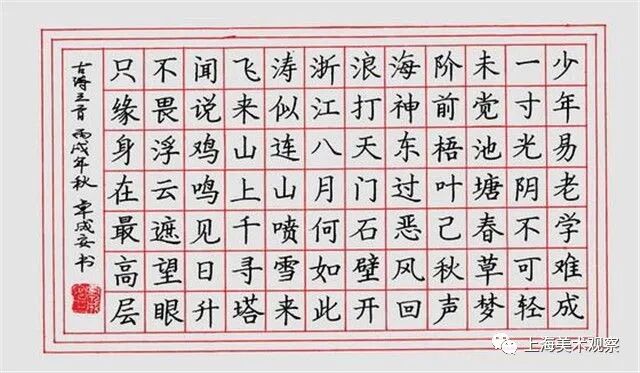 少年易老学难成
一寸光阴不可轻
未觉池塘春草梦
阶前梧叶己秋声
海神东过恶风回
浪打天门石壁开
浙江八月何如此
涛似连山喷雪来
飞来山上千寻塔
闻说鸡鸣见日升
不畏浮云遮望眼
只缘身在最高层
古诗三首 丙戌年秋 书
上海美术观察